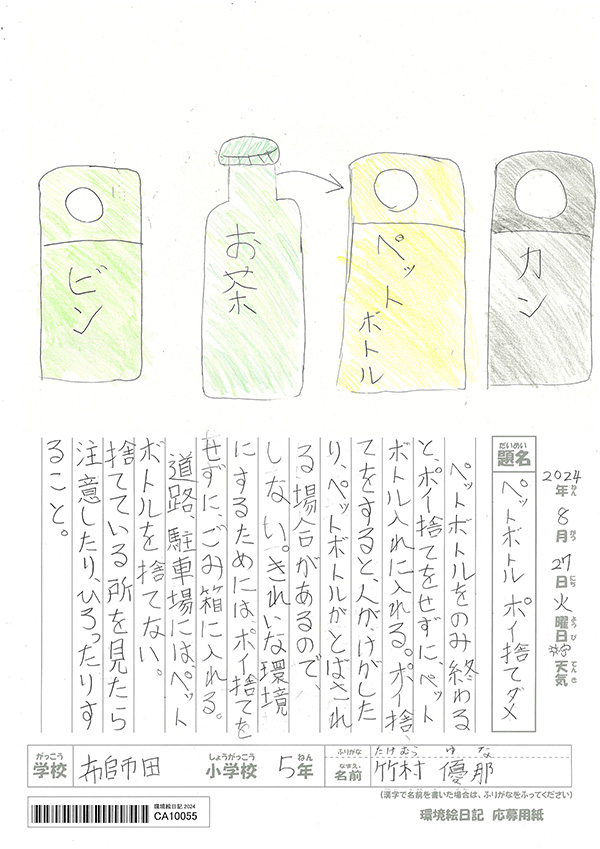 カン
ペット
ボトル
お茶
ビン
だいめい
題名
ペットボトル ポイ捨てダメ
2024年 8月 27日 火曜日 天気
ねん がつ にち ようび てんき
ペットボトルをのみ終わる
と、ポイ捨てをせずに、ペット
ボトル入れに入れる。ポイ捨
てをすると、人がけがした
り、ペットボトルがとばされ
る場合があるので、
しない。きれいな環境
にするためには、ポイ捨てを
せずに、ごみ箱に入れる。
道路、駐車場にはペット
ボトルを捨てない。
捨てている所を見たら
注意したり、ひろったりす
ること。
がっこう しょうがっこう ねん ふりがな たけむら ゆな
学校 布師田 小学校 5年 なまえ 名前 竹村 優那
(漢字で名前を書いた場合は、ふりがなをふってください)
環境絵日記 2024
CA10055
環境絵日記 応募用紙